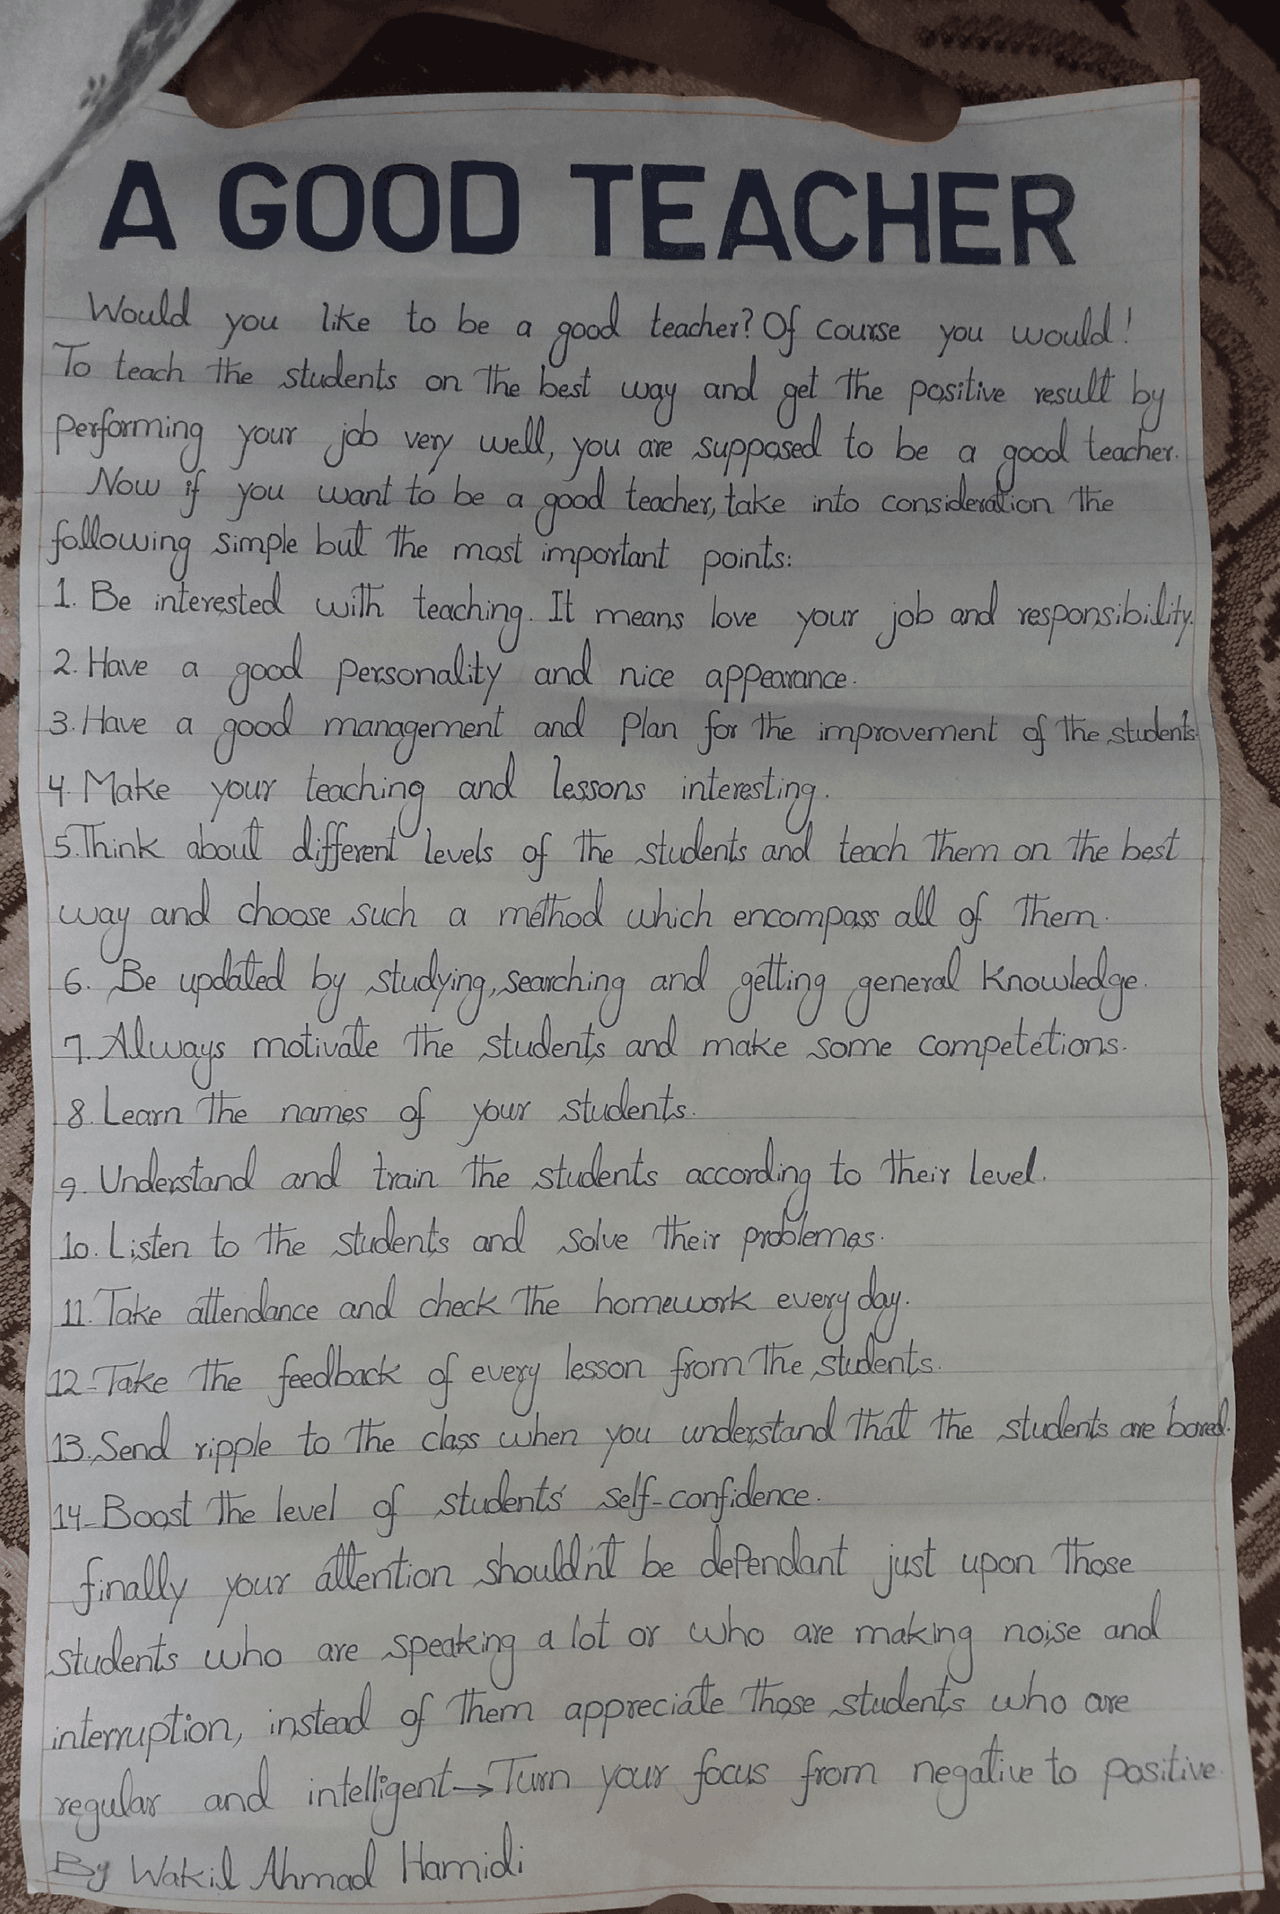 A GOOD TEACHER
Would you like to be a good teacher? Of course you would!
To teach the students on the best way and get the positive result by
performing your job very well, you are supposed to be a good teacher.
Now if you want to be a good teacher, take into consideration the
following simple but the most important points:
1. Be interested with teaching. It means love your job and responsibility.
2. Have a good personality and nice appearance.
3. Have a good management and plan for the improvement of the students.
4. Make your teaching and lessons interesting.
5. Think about different levels of the students and teach them on the best
way and choose such a method which encompass all of them.
6. Be updated by studying, searching and getting general knowledge.
7. Always motivate the students and make some competetions.
8. Learn the names of your students.
9. Understand and train the students according to their level.
10. Listen to the students and solve their problemes.
11. Take attendance and check the homework every day.
12-Take the feedback of every lesson from the students.
13. Send ripple to the class when you understand that the students are bored.
14- Boost the level of students' self-confidence.
finally your attention shouldn't be dependant just upon those
students who are speaking a lot or who are making noise and
interruption, instead of them appreciate those students who are
regular and intelligent→Turn your focus from negative to positive.
By Wakil Ahmad Hamidi